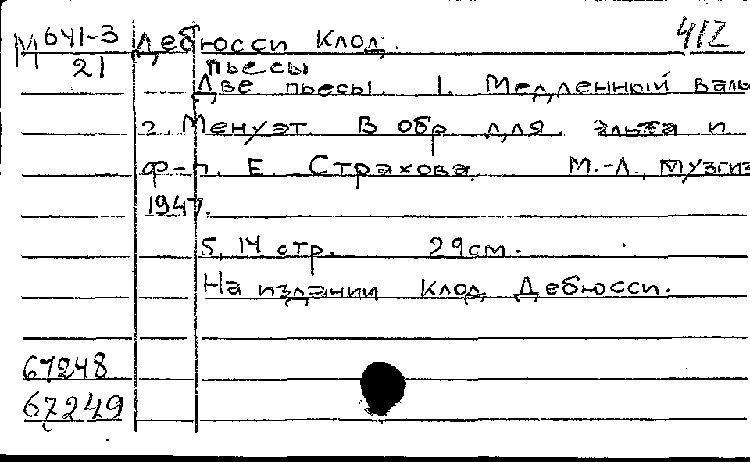 М 641-3 Дебюсси Клод. 412
21 Пьесы
Две пьесы. 1. Медленный валь
2. Менуэт. В обр. для альта и
ф-п. Е. Страхова. М.-Л., Музгиз
1947.
5, 14 стр. 29см.
На издании Клод Дебюсси.
67248
67249